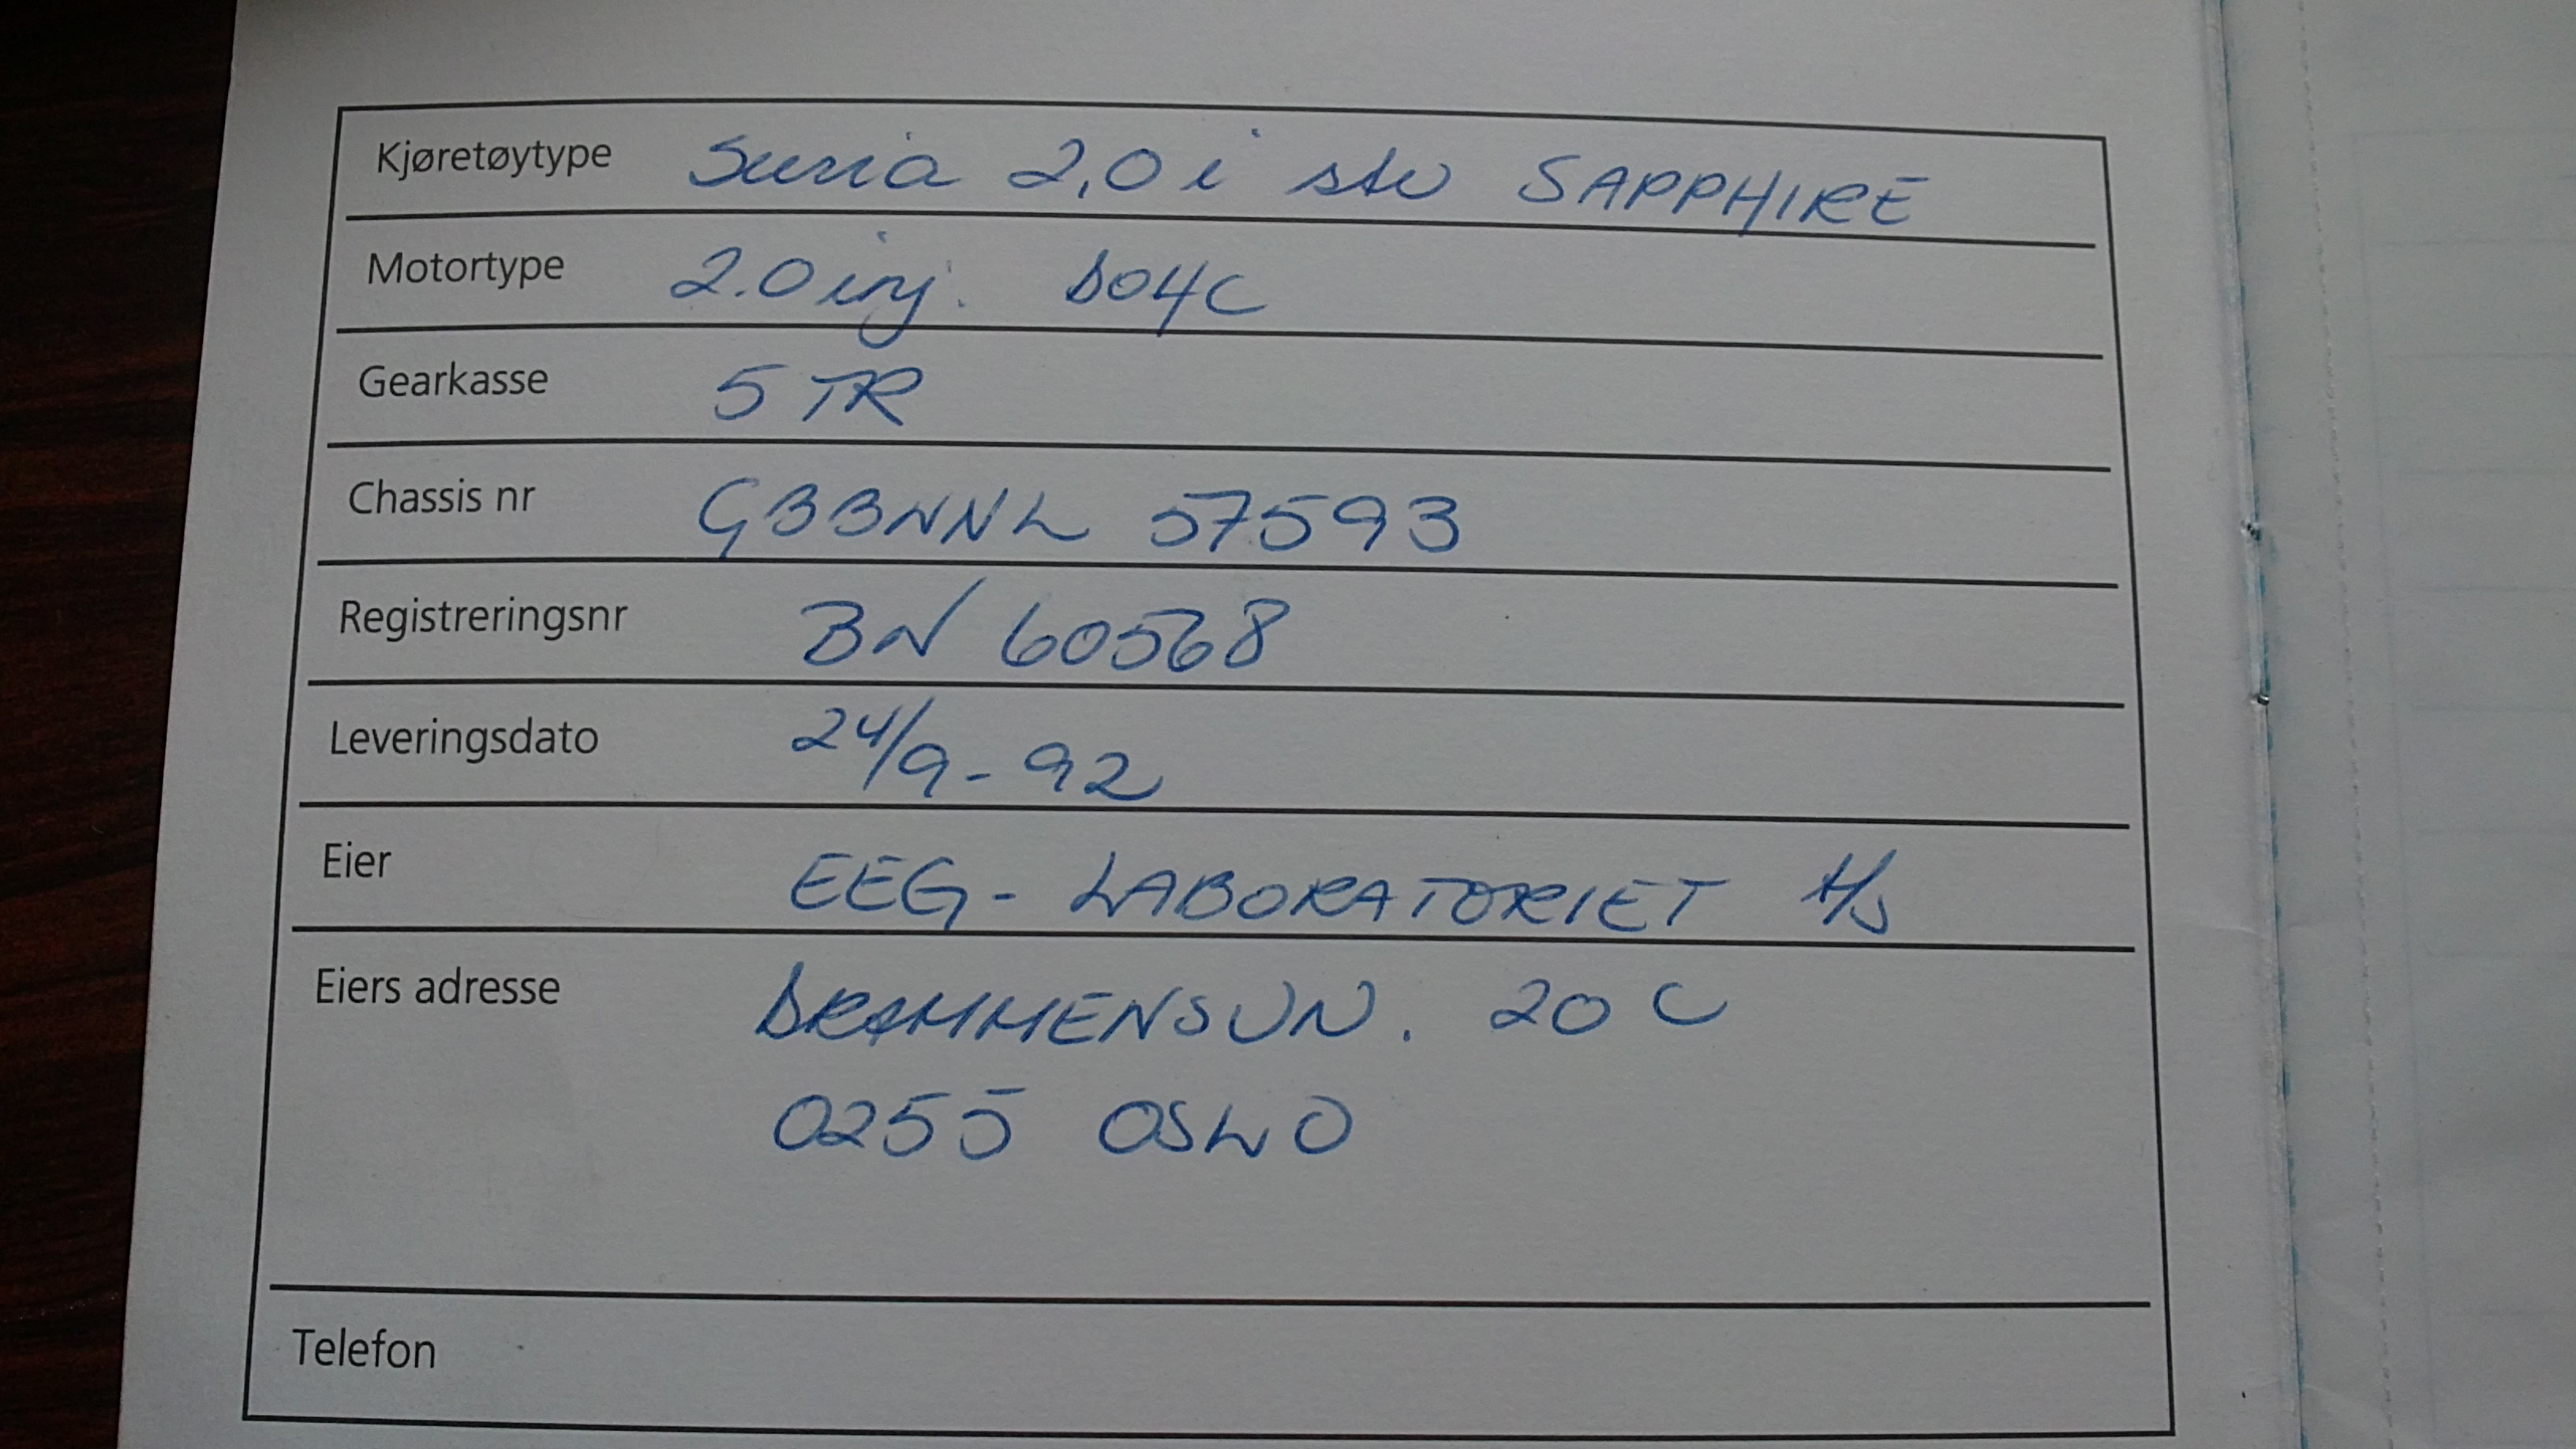 Kjøretøytype Sierra 2,0 i stv SAPPHIRE
Motortype 2.0 inj. D04C
Gearkasse 5 TR
Chassis nr GBBNNL 57593
Registreringsnr BN 60568
Leveringsdato 24/9-92
Eier EEG-LABORATORIET A/S
Eiers adresse DRAMMENSVN. 20 C
0255 OSLO
Telefon